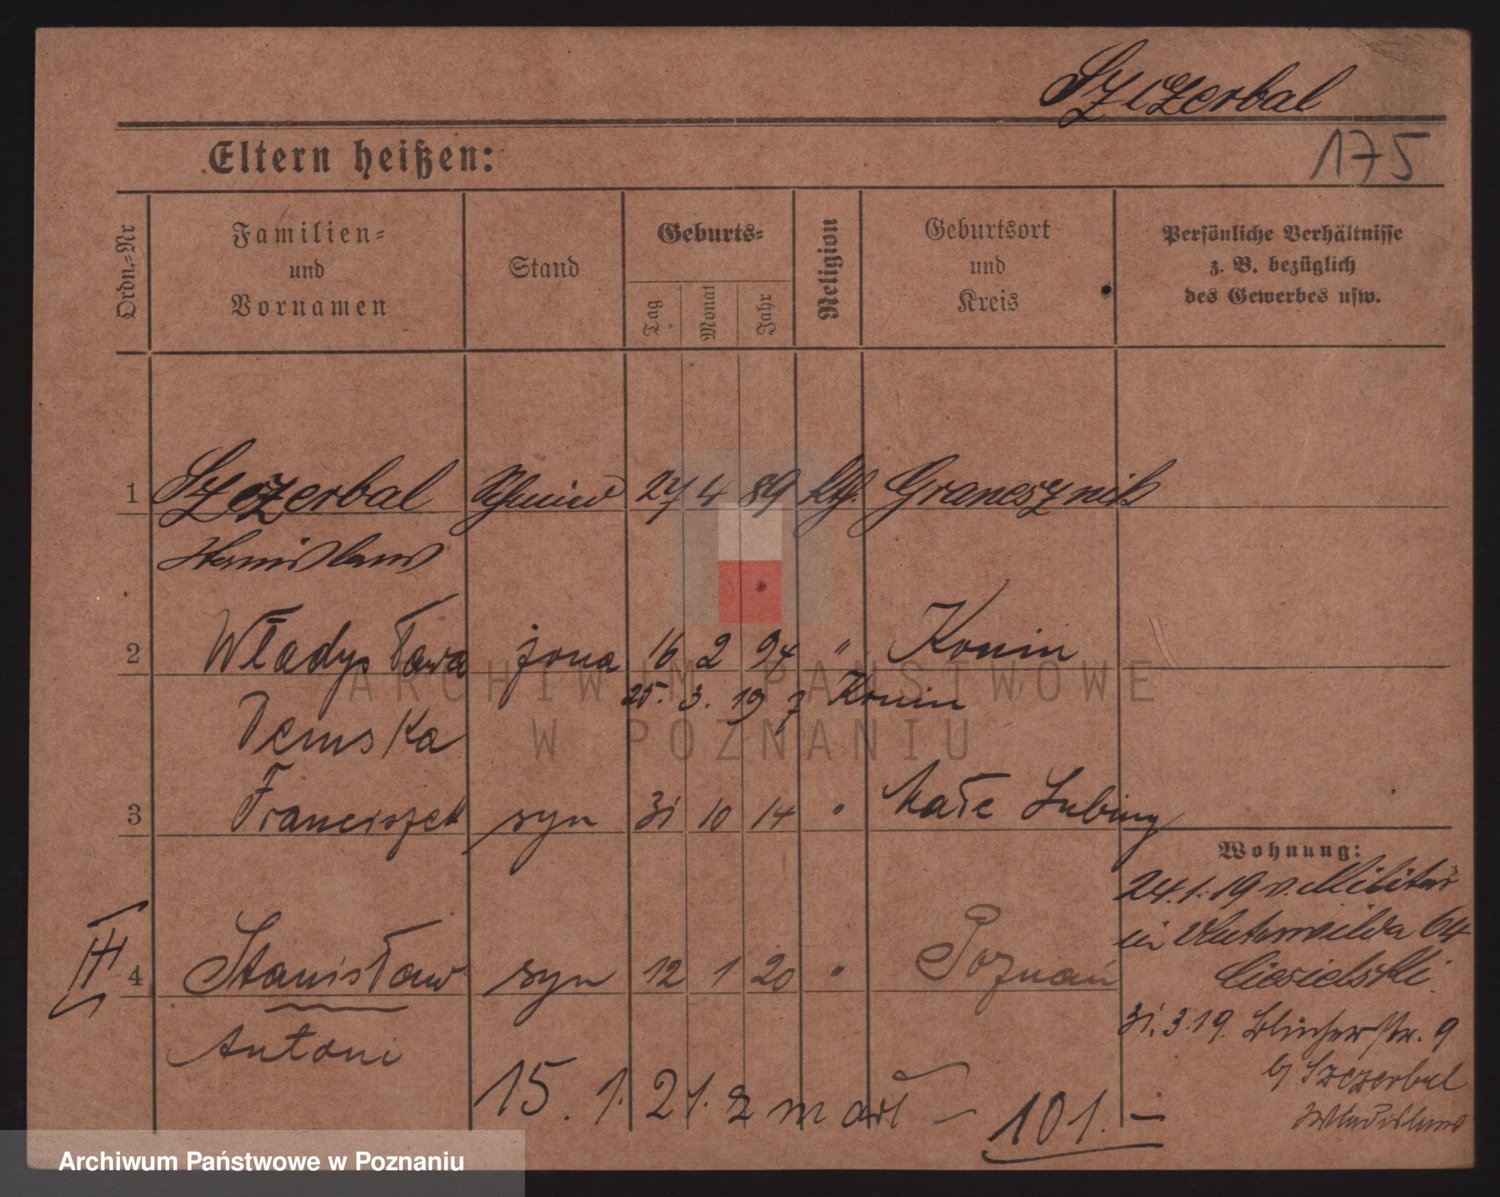 Szczerbal
175
Eltern heißen:
Ordn.-Nr
Familien-
und
Vornamen
Stand
Geburts-
Tag
Monat
Jahr
Religion
Geburtsort
und
Kreis
Persönliche Verhältnisse
z. B. bezüglich
des Gewerbes usw.
1 Szczerbal Schmied 27 4 89 kth.
Stanislaus
2 Władysława żona 16 2 94 " Konin
25. 3. 19 z Konin
Demska
3 Franciszek syn 31 10 14 " Małe
Wohnung:
24.1.19 v. Militär
in Unterwilda 64
Ciesielski.
4 Stanisław syn 12 1 20 " Poznań
31.3.19. Blücherstr. 9
b/ Szczerbal
Antoni
15. 1. 21. zmarł – 101. –
ARCHIWUM PAŃSTWOWE
W POZNANIU
Archiwum Państwowe w Poznaniu